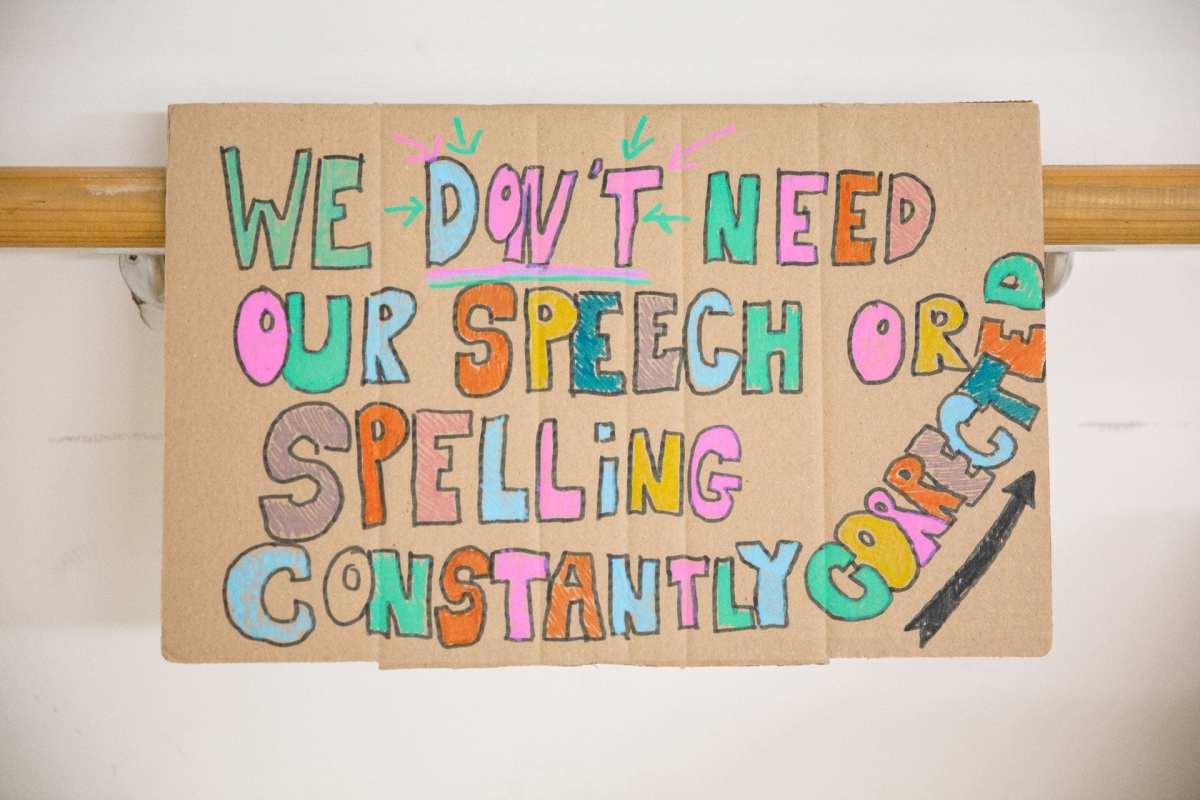 WE DON'T NEED
OUR SPEECH OR
SPELLiNG
CONSTANTLY CORRECTED